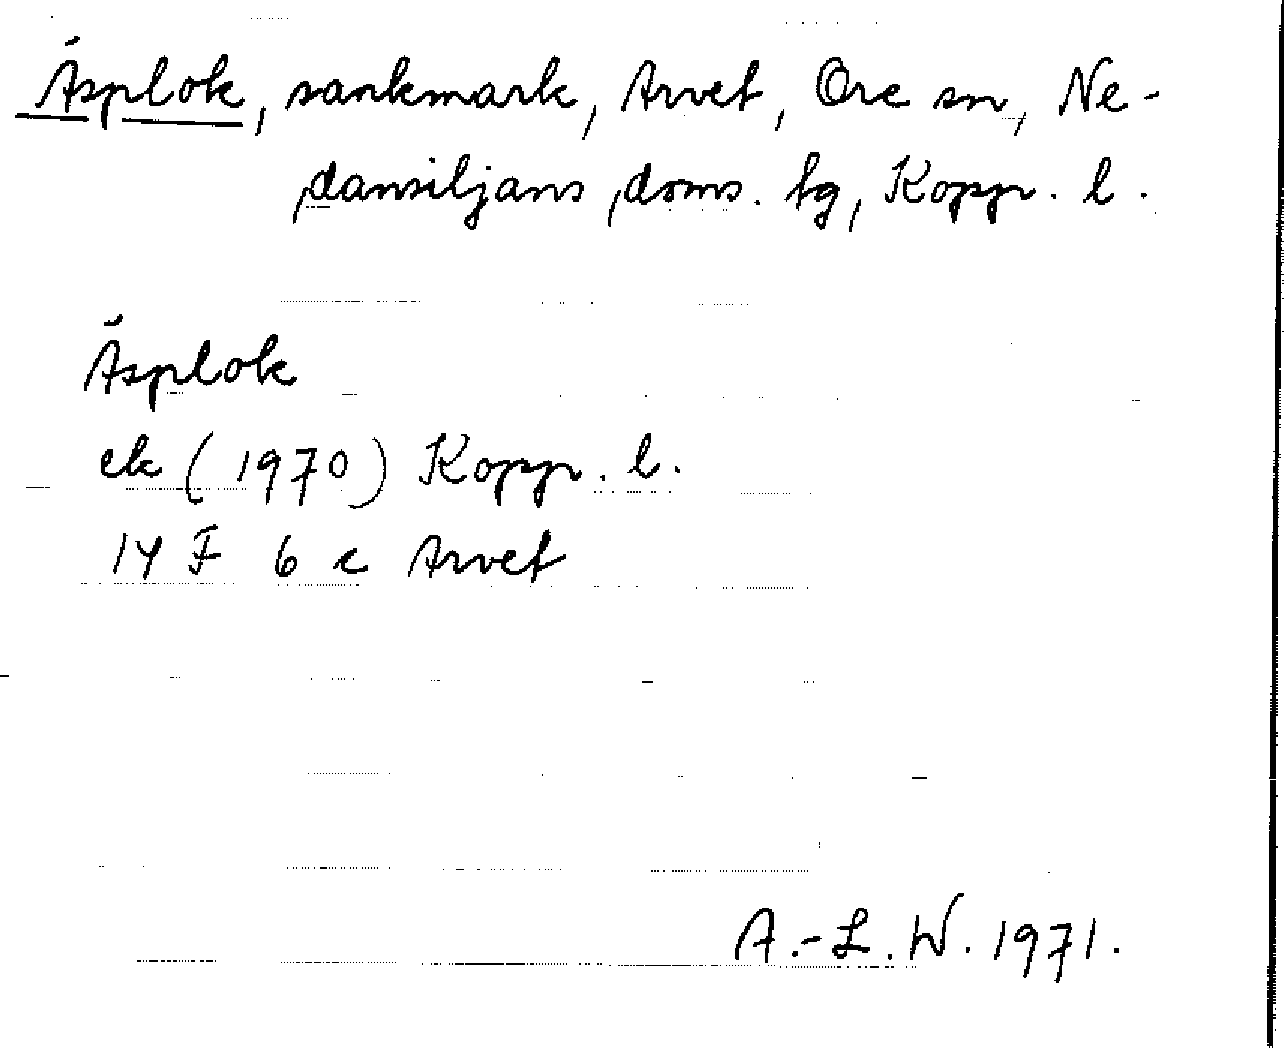 Äsplok, sankmark, Arvet, Ore sn, Ne-
dansiljans doms. tg, Kopp. l.
Äsplok
ek (1970) Kopp. l.
14 F 6 c Arvet
A.-L. W. 1971.